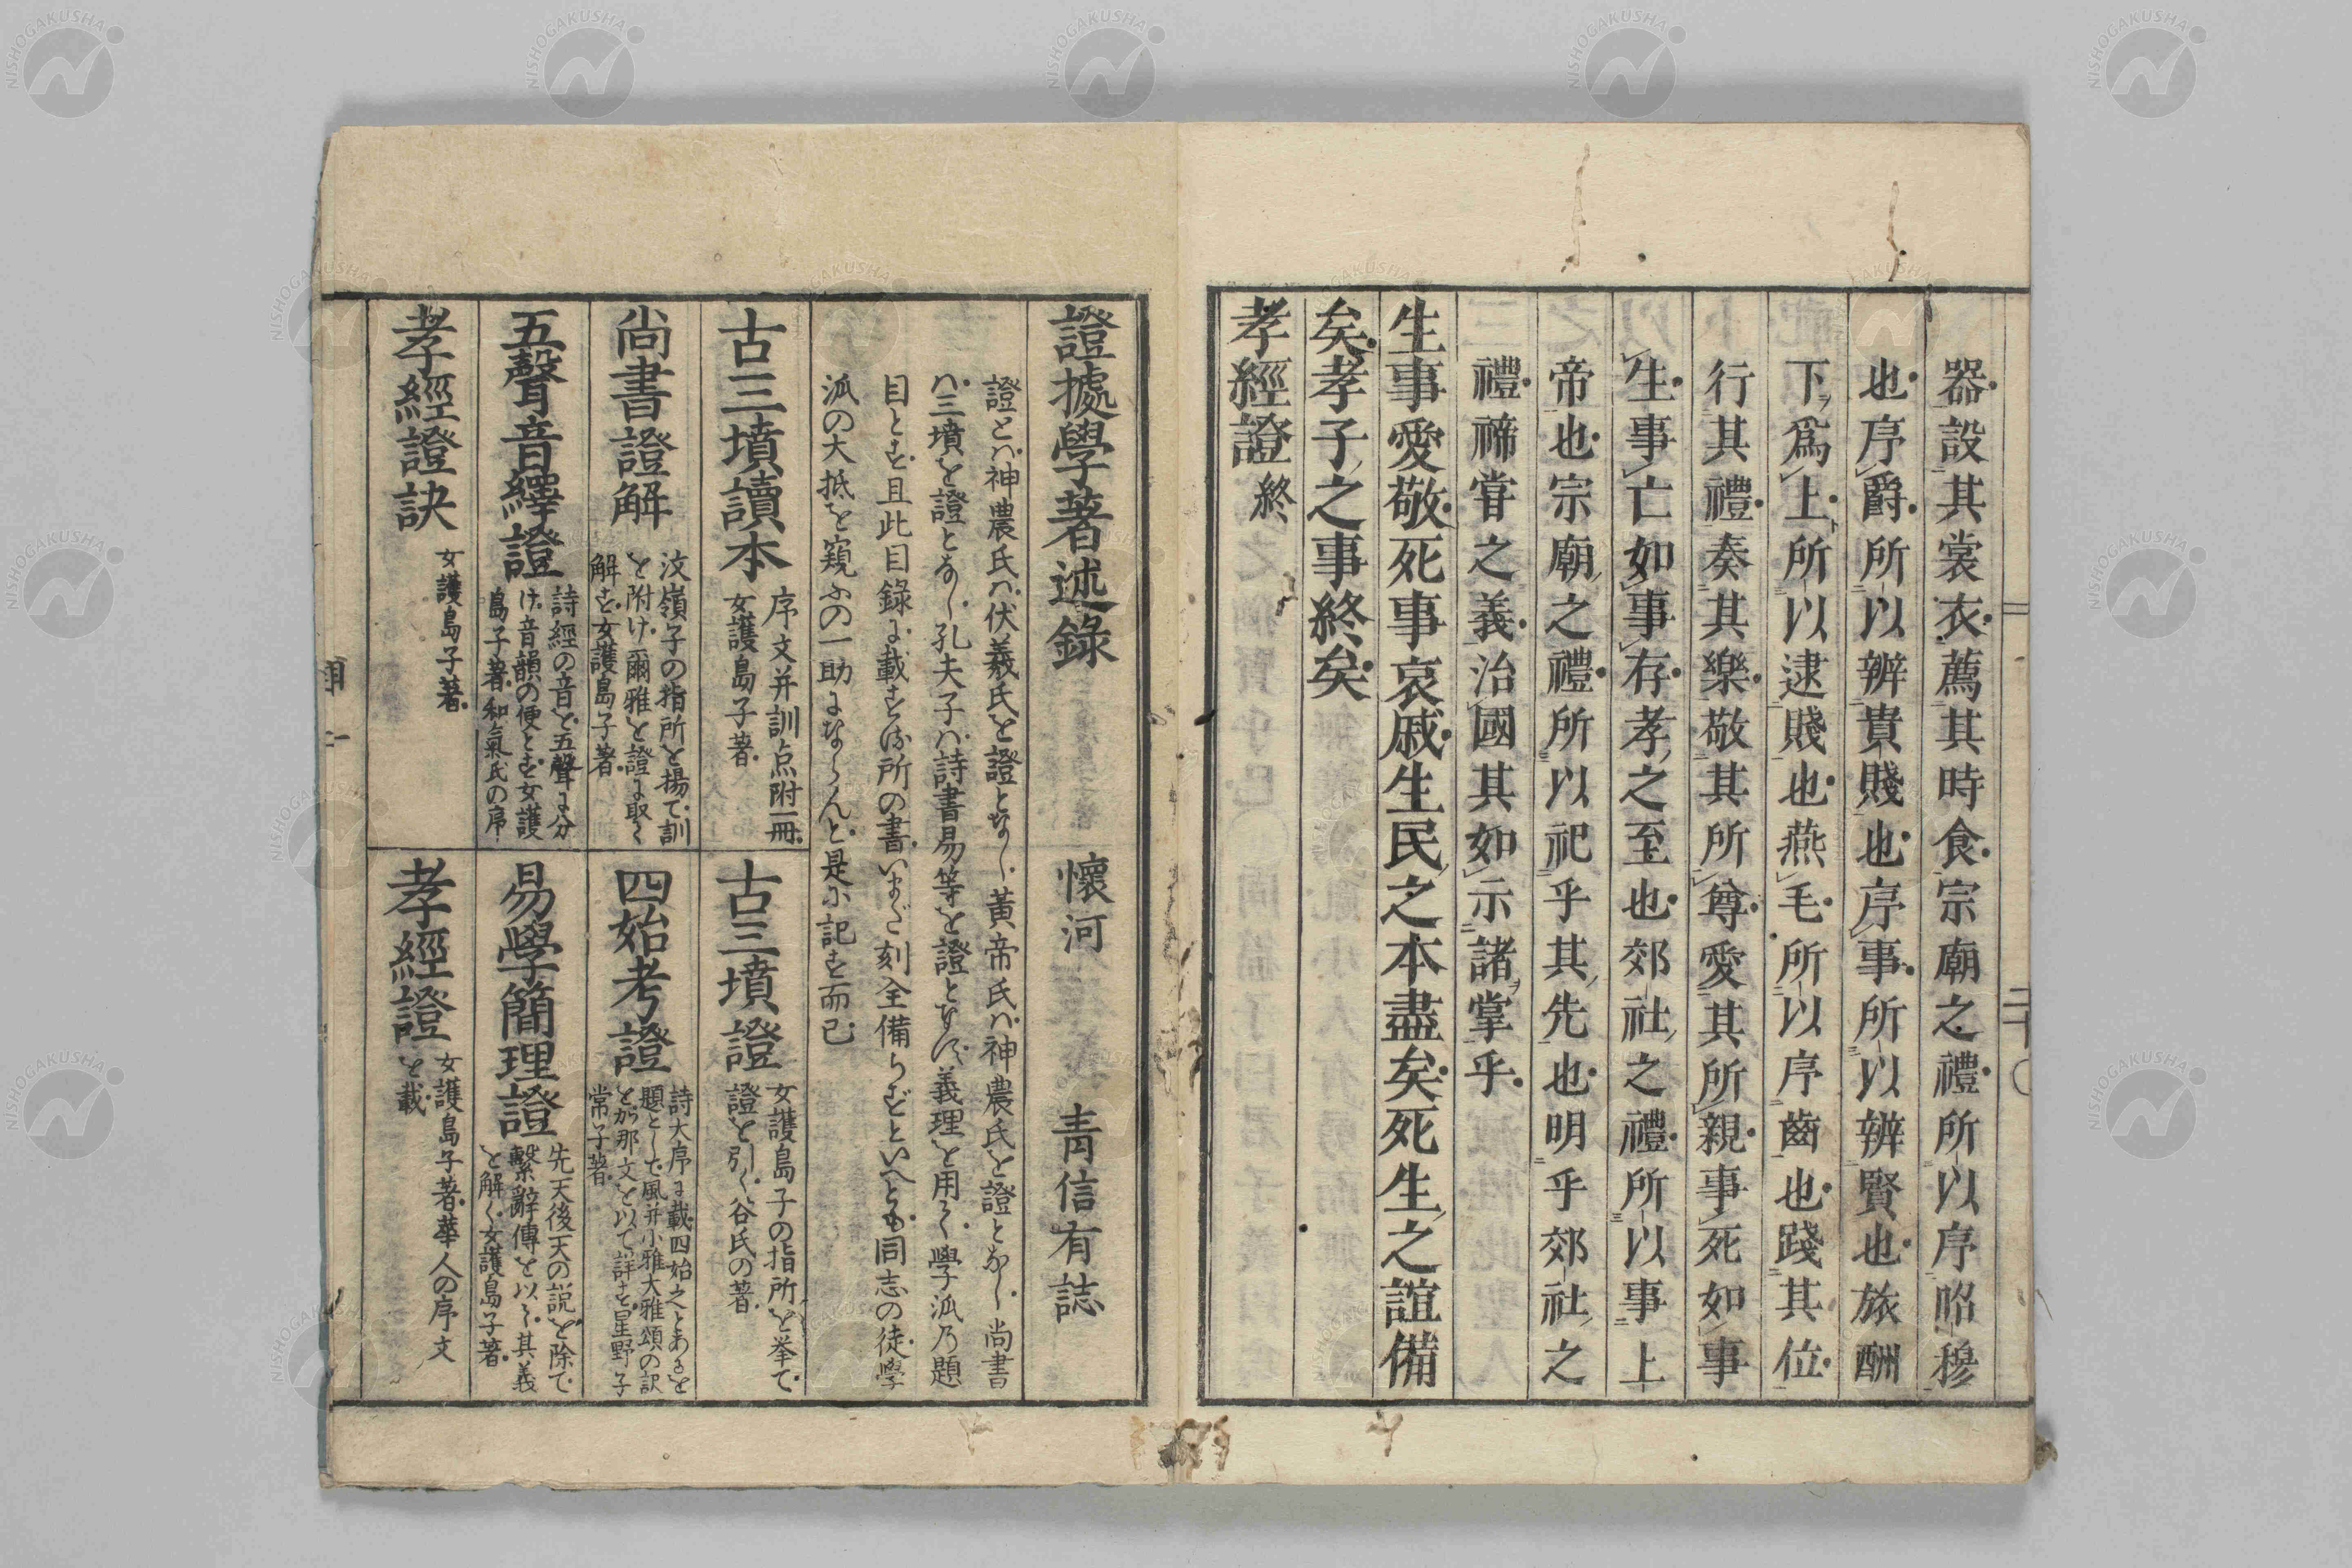 器設其裳衣薦其時食宗廟之禮所以序昭穆
也序爵所以辨貴賤也序事所以辨賢也旅酬
下爲上所以逮賤也燕毛所以序齒也踐其位
行其禮奏其樂敬其所尊愛其所親事死如事
生事亡如事存孝之至也郊社之禮所以事上
帝也宗廟之禮所以祀乎其先也明乎郊社之
禮禘甞之義治國其如示諸掌乎
生事愛敬死事哀戚生民之本盡矣死生之誼備
矣孝子之事終矣
孝經證終
證據學著述錄 懷河 青信有誌
證とハ神農氏ハ伏羲氏を證となし黃帝氏ハ神農氏を證となし尚書
ハ三墳を證となし孔夫子ハ詩書易等を證となス義理を用て學派乃題
目とす且此目錄に載する所の書いまだ刻全備らずといへとも同志の徒學
派の大抵を窺ふの一助にならんと是に記す而已
古三墳讀本 序文并訓点附一冊
女護島子著
古三墳證 女護島子の指所を挙て
證を引く谷氏の著
尚書證解 汶嶺子の指所を揚て訓
を附け爾雅を證に取て
解す女護島子著
四始考證 詩大序に載四始之とあるを
題として風并小雅大雅頌の訳
をが那文を以て詳す星野子
常子著
五聲音繹證 詩經の音を五聲に分
け音韻の便とす女護
島子著和氣氏の序
易學簡理證 先天後天の説を除て
繫辭傳を以て其義
を解く女護島子著
孝經證訣 女護島子著
孝經證 女護島子著華人の序文
を載
NISHOGAKUSHA